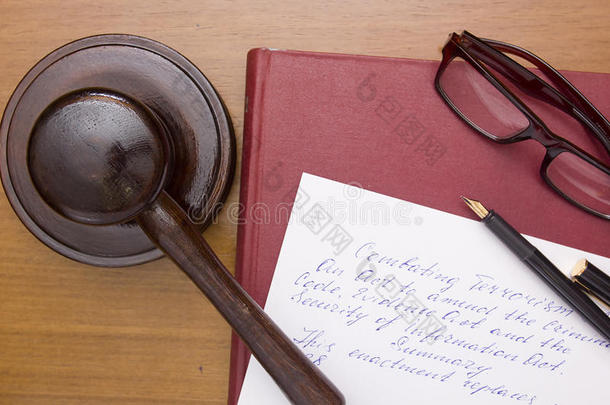 Combating Terrorism
An Act to amend the Criminal
Code, Evidence Act and the
Security of Information Act.
Summary
This enactment replaces
包图网
dreamstime